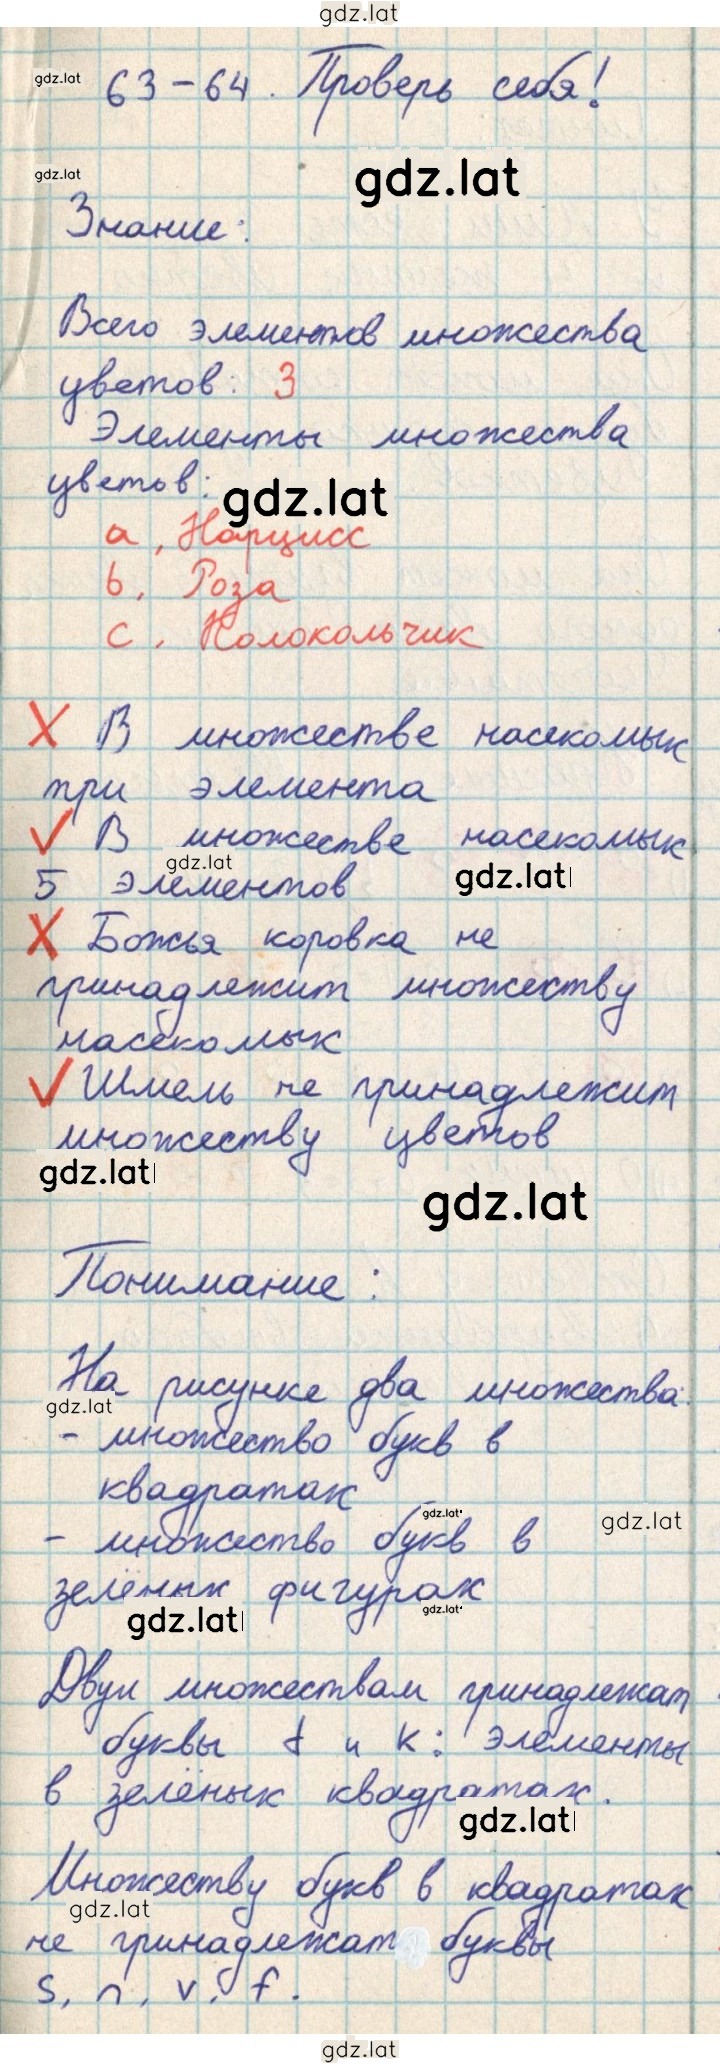 gdz.lat
gdz.lat
63-64. Проверь себя!
gdz.lat
gdz.lat
Знание:
Всего элементов множества
цветов: 3
Элементы множества
цветов:
gdz.lat
a, Нарцисс
b, Роза
c, Колокольчик
X В множестве насекомых
три элемента
✓ В множестве насекомых
gdz.lat
5 элементов
gdz.lat
X Божья коровка не
принадлежит множеству
насекомых
✓ Шмель не принадлежит
множеству цветов
gdz.lat
gdz.lat
Понимание:
На рисунке два множества:
gdz.lat
- множество букв в
квадратах
gdz.lat
gdz.lat
- множество букв в
зелёных фигурах
gdz.lat
gdz.lat
Двум множествам принадлежат
буквы d и k: элементы
в зелёных квадратах.
gdz.lat
Множеству букв в квадратах
gdz.lat
не принадлежат буквы
s, n, v, f.
gdz.lat